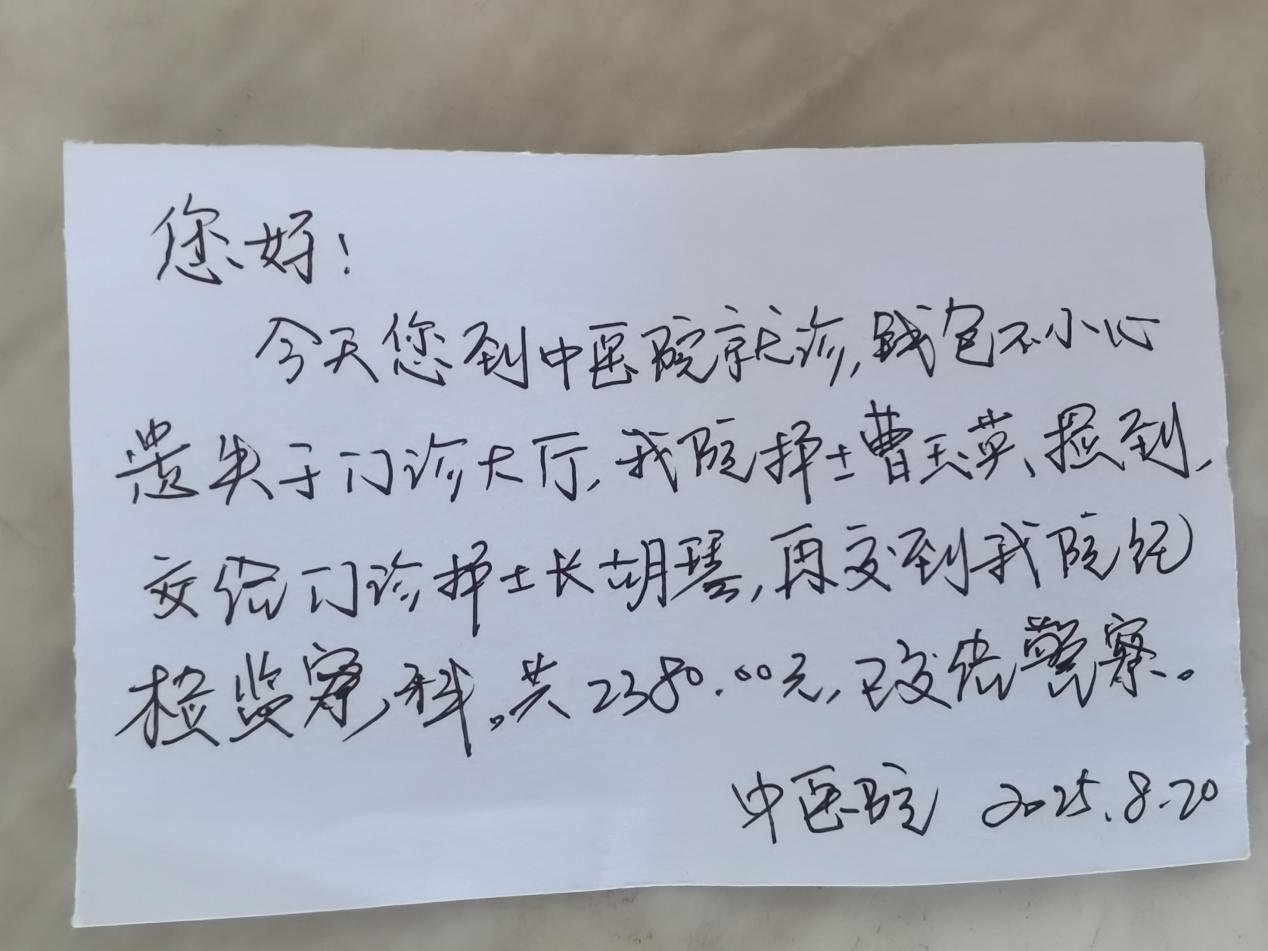 您好!
今天您到中医院就诊,钱包不小心
遗失于门诊大厅,我院护士曹玉英、捡到,
交给门诊护士长胡琴,再交到我院纪
检监察科。共2380.00元,已交给警察。
中医院 2025.8.20